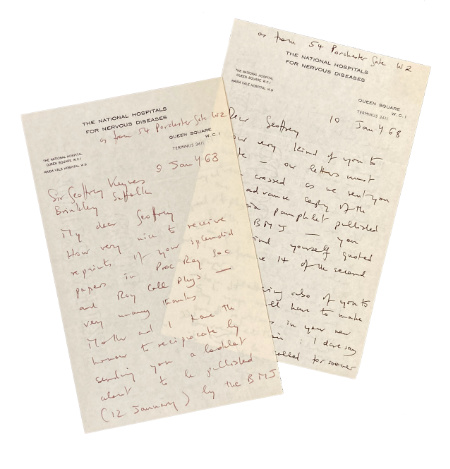 THE NATIONAL HOSPITALS
FOR NERVOUS DISEASES
as from 54 Porchester Gate W2
THE NATIONAL HOSPITAL
QUEEN SQUARE, W.C.1
MAIDA VALE HOSPITAL, W.9
QUEEN SQUARE
W.C.1
TERMINUS
5 Jan 68
Sir Geoffrey Keynes
Brinkley Suffolk
My dear Geoffrey
How very nice to receive
reprints of your splendid
papers in Proc Roy Soc
and Roy Coll Phys —
very many thanks
Mother and I have the
honour to reciprocate by
sending you a booklet
about to be published
(12 January) by the BMJ
as from 54 Porchester Gate W2
THE NATIONAL HOSPITALS
FOR NERVOUS DISEASES
THE NATIONAL HOSPITAL
QUEEN SQUARE, W.C.1
MAIDA VALE HOSPITAL, W.9
QUEEN SQUARE
W.C.1
TERMINUS
10 Jan 68
Dear Geoffrey
How very kind of you to
— our letters must
crossed as we sent you
advance copy of the
pamphlet published
BMJ — you
find yourself quoted
14 of the second
also of you to
have to make
in your new
I dare say
called for